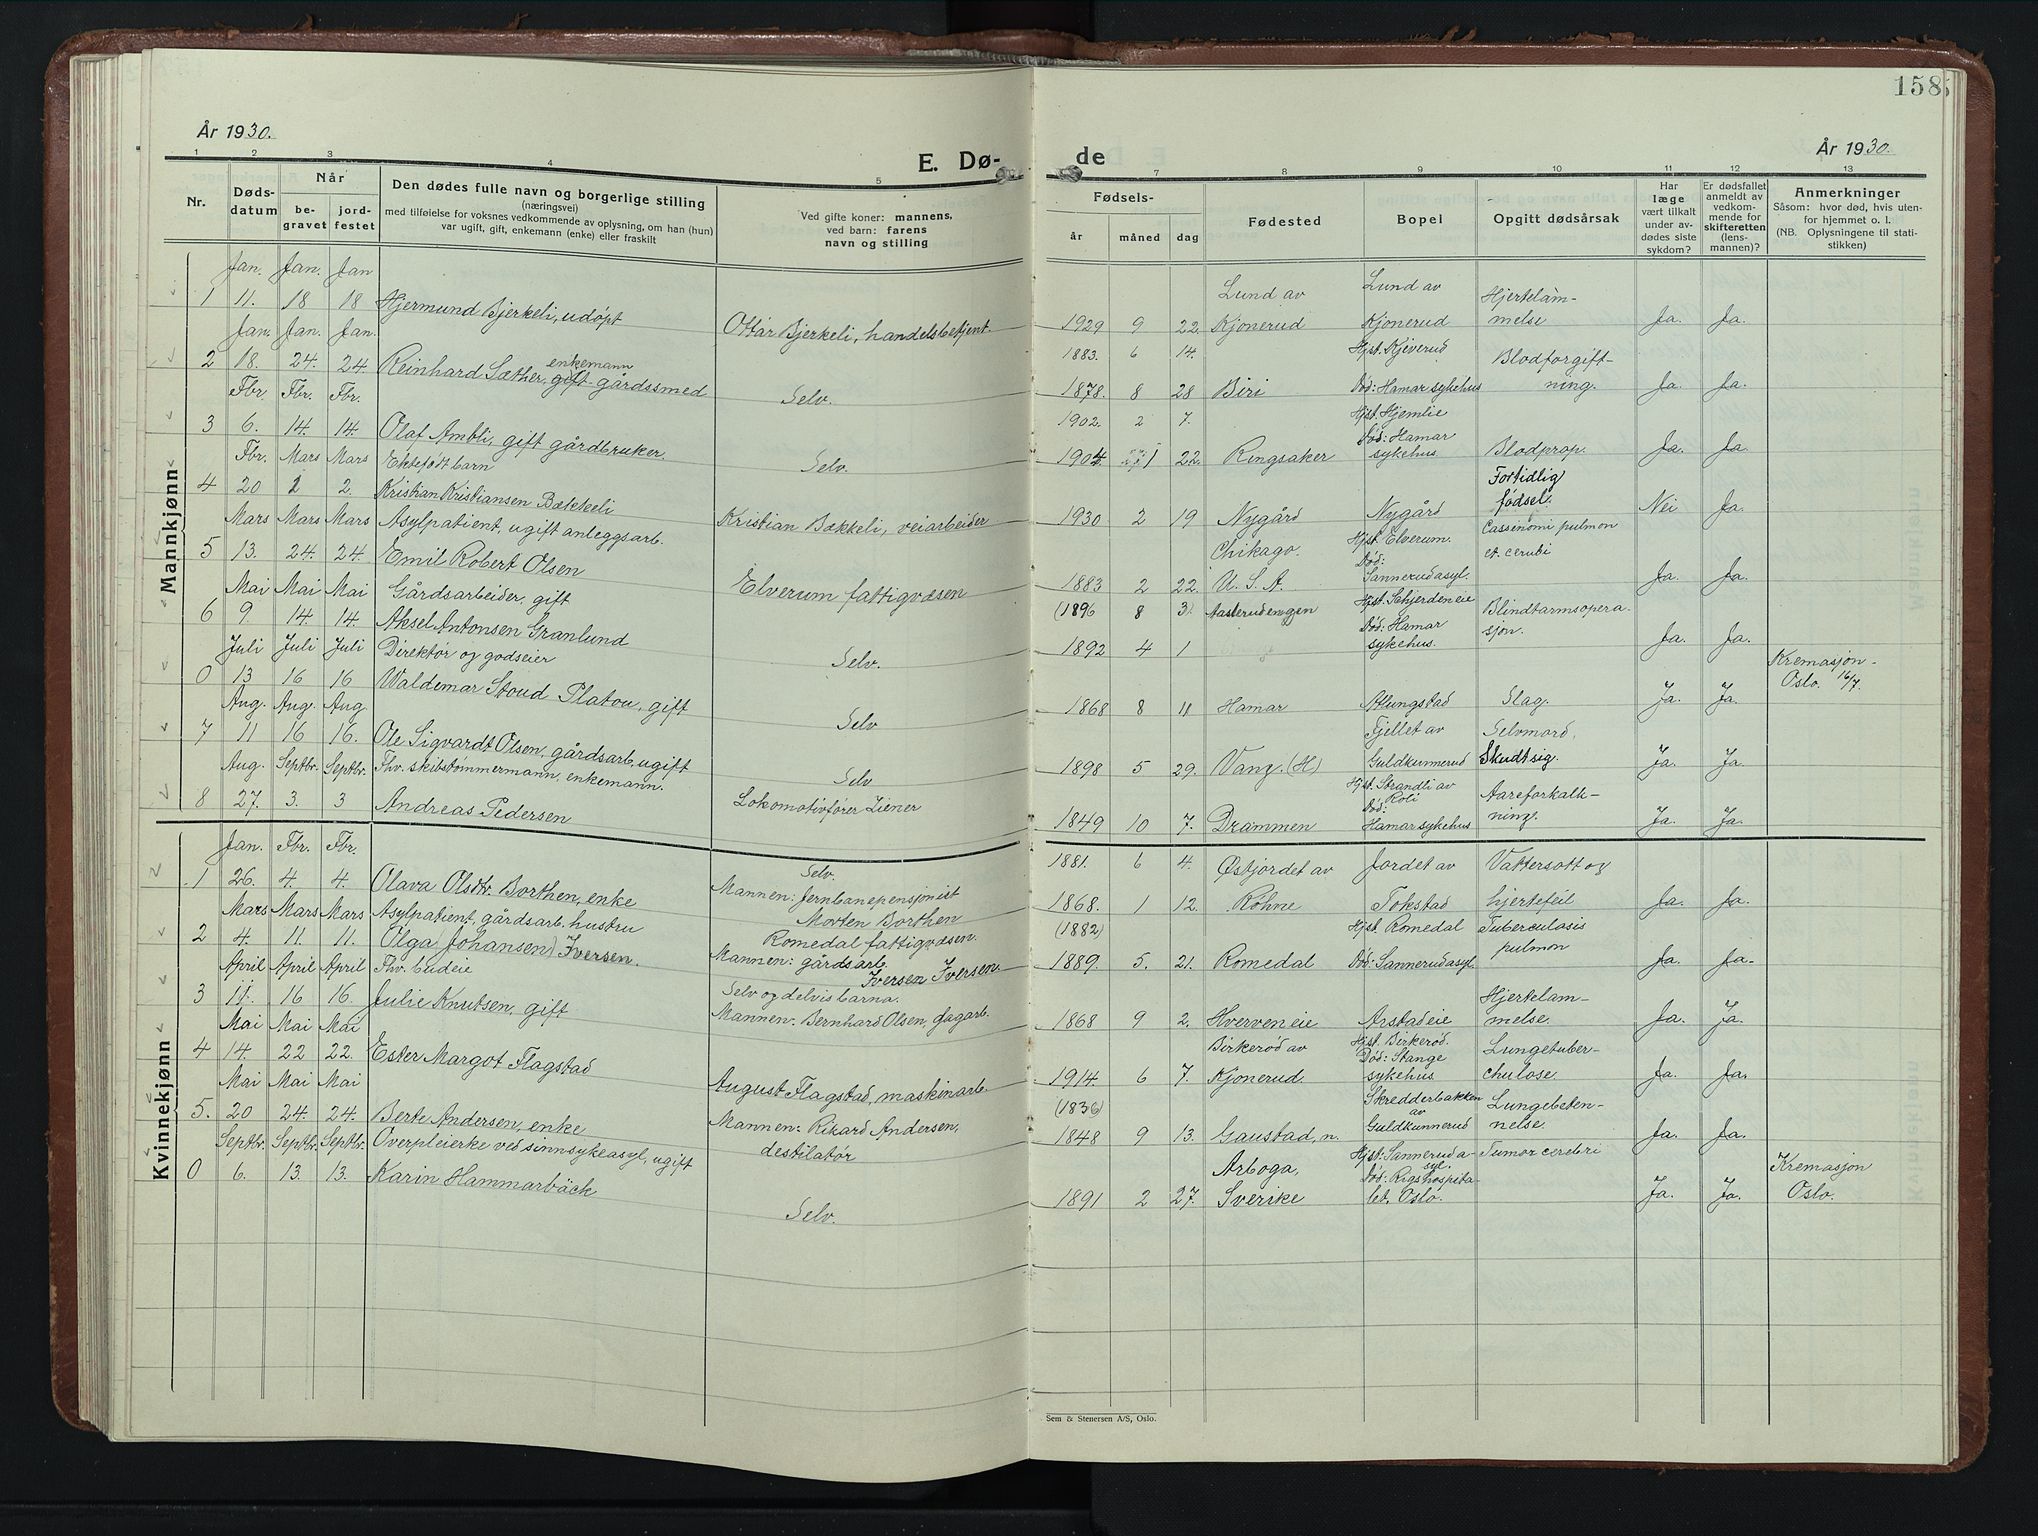 158
År 1930.
E. Dø-
1
2
3
4
5
Nr.
Døds-
datum
Når
be-
gravet
jord-
festet
Den dødes fulle navn og borgerlige stilling
(næringsvei)
med tilføielse for voksnes vedkommende av oplysning, om han (hun)
var ugift, gift, enkemann (enke) eller fraskilt
Ved gifte koner: mannens,
ved barn: farens
navn og stilling
Mannkjønn
Jan. Jan. Jan
1 11. 18 18 Hjermund Bjerkeli, udøpt
Ottar Bjerkeli, handelsbetjent.
Jan. Jan. Jan.
enkemann
2 18. 24. 24 Reinhard Sæther, gift gårdssmed
Selv.
Fbr. Fbr. Fbr.
3 6. 14. 14. Olaf Ambli, gift gårdbruker
Selv.
Fbr. Mars Mars Ektefødt barn
4 20 2 2. Kristian Kristiansen Bækkeli
Kristian Bækkeli, veiarbeider
Mars Mars Mars Asylpatient, ugift anleggsarb.
5 13. 24. 24. Emil Robert Olsen
Elverum fattigvæsen
Mai Mai Mai Gårdsarbeider, gift
6 9. 14. 14. Aksel Antonsen Granlund
Selv.
Juli Juli Juli Direktør og godseier
0 13 16 16 Waldemar Stoud Platou, gift
Selv
Aug. Aug. Aug.
7 11 16 16. Ole Sigvardt Olsen, gårdsarb, ugift
Selv
Aug. Septbr. Septbr. Fhv. skibstømmermann, enkemann.
8 27. 3. 3 Andreas Pedersen
Lokomotivfører Ziener
Kvinnekjønn
Jan. Fbr. Fbr.
Selv.
1 26. 4. 4. Olava Olsdtr. Borthen, enke
Mannen: Jernbanepensjonist
Morten Borthen
Mars Mars Mars Asylpatient, gårdsarb. hustru
Romedal fattigvæsen.
2 4. 11. 11. Olga (Johansen) Iversen.
Mannen: gårdsarb.
Iversen Iversen.
April April April Fhv. budeie
Selv og delvis barna.
3 11. 16 16. Julie Knutsen, gift
Mannen: Bernhard Olsen, dagarb.
Mai Mai Mai
4 14. 22 22. Ester Margot Flagstad
August Flagstad, maskinarb.
Mai Mai Mai
5. 20 24. 24. Berte Andersen, enke
Mannen: Rikard Andersen,
destilatør
Septbr. Septbr. Septbr. Overpleierke ved sinnsykeasyl, ugift
0 6. 13. 13. Karin Hammarbäck
Selv.
de
År 1930.
7
8
9
10
11
12
13
Fødsels-
år
måned
dag
Fødested
Bopel
Opgitt dødsårsak
Har
læge
vært tilkalt
under av-
dødes siste
sykdom?
Er dødsfallet
anmeldt av
vedkom-
mende for
skifteretten
(lens-
mannen)?
Anmerkninger
Såsom: hvor død, hvis uten-
for hjemmet o. l.
(NB. Oplysningene til stati-
stikken)
Lund av Lund av Hjertelam-
1929 9 22. Kjonerud Kjonerud melse Ja. Ja.
1883. 6 14. Hjst. Kjeverud Blodforgift-
1878. 8 28 Biri Død: Hamar sykehus ning. Ja. Ja.
1902. 2 7. Hjst. Hjemlie
Død: Hamar
1904 1 22. Ringsaker sykehus. Blodprop. Ja. Ja.
Fortidlig
1930 2 19 Nygård Nygård fødsel. Nei Ja.
Chikago. Hjst. Elverum. Cassenomi pulmon
Død: et. cerubi
1883 2 22. U. S. A. Sannerudasyl. Ja. Ja.
(1896 8 3) Aasterudengen Hjst. Schjerdeneie Blindtarmsopera-
Død: Hamar sjon.
1892 4 1 sykehus. Ja. Ja.
Kremasjon-
Oslo. 16/7.
1868 8 11 Hamar Atlungstad Slag. Ja. Ja.
Fjellet av Selvmord,
1898 5 29. Vang. (H) Guldkunnerud Skudt sig. Ja. Ja.
Hjst. Strandli av
Roli Aareforkalk-
Død:
1849 10 7. Drammen Hamar sykehus ning. Ja. Ja.
1881. 6 4. Østjordet av Jordet av Vattersott og
1868. 1 12. Rohne Tokstad hjertefeil Ja. Ja.
(1882) Hjst. Romedal Tuberculosis
pulmon
1889. 5. 21. Romedal Død: Sannerudasyl. Ja. Ja.
Hjertelam-
1868 9 2. Hverven eie Arstadeie melse. Ja. Ja.
Birkerød av Hjst. Birkerød. Lungetuber-
Død: Stange
1914. 6 7. Kjonerud. sykehus. chulose. Ja. Ja.
(1836) Skredderbakken Lungebeten-
av
1848 9 13. Gaustad, n. Guldkunnerud nelse. Ja. Ja.
Hjst: Sanneruda- Tumor cerebri
syl.
Arboga, Død: Rigshospita- Kremasjon
1891 2 27. Sverike let, Oslo. Ja. Ja. Oslo.
Sem & Stenersen A/S, Oslo.